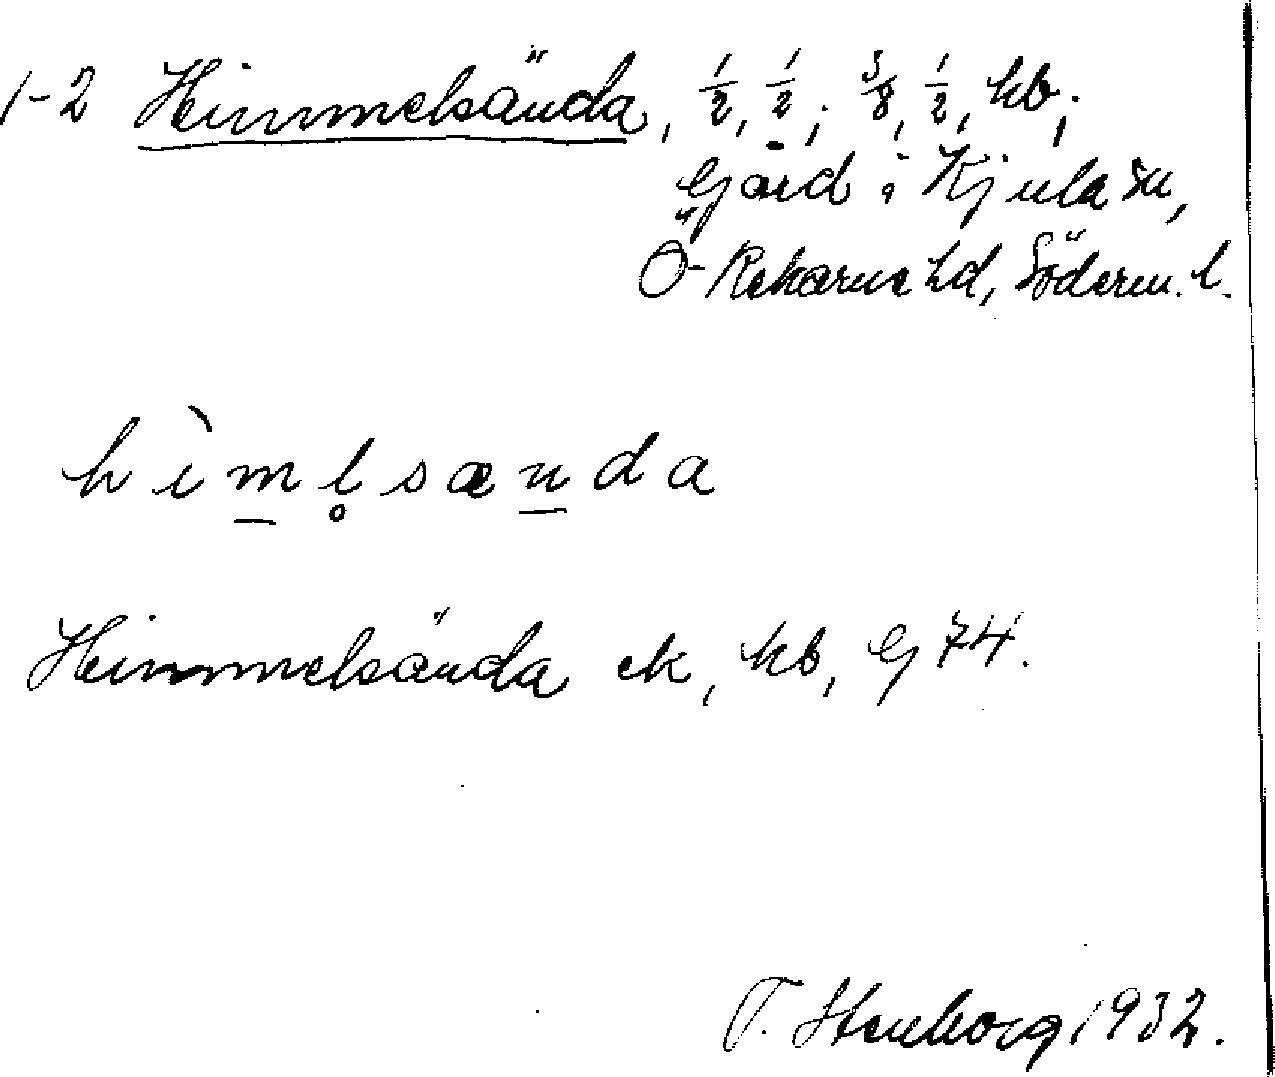 1-2 Himmelsända, 1/2, 1/2; 3/8, 1/2, kb;
Gård i Kjula sn,
Ö-Rekarne hd, Söderm. l.
hìml̥sænda
Himmelsända ek, kb, G 74.
T. Stenborg 1932.